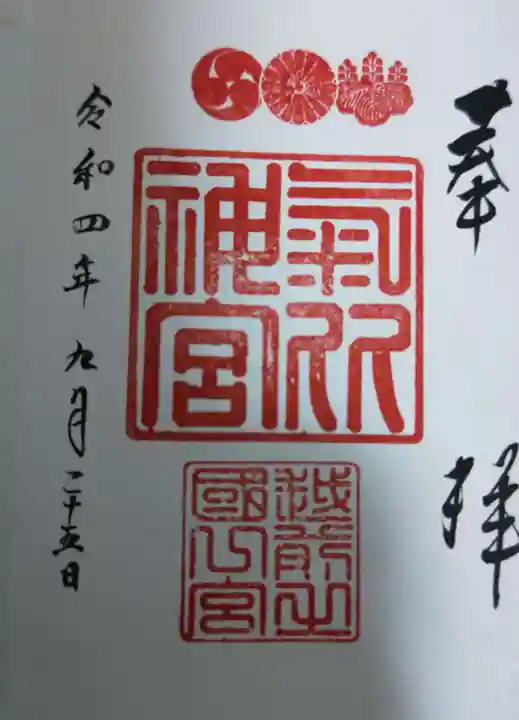 奉拝
氣比
神宮
越前之
國一宮
令和四年九月二十五日